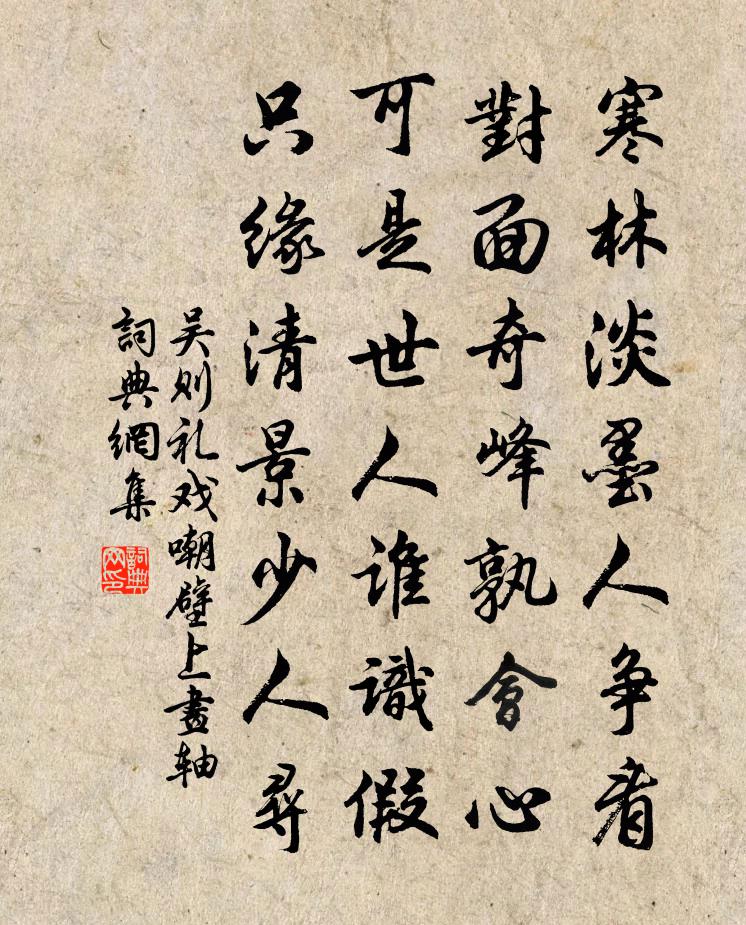 寒林淡墨人争看
對面奇峰孰會心
可是世人谁識假
只缘清景少人尋
吴则礼戏嘲壁上畫轴
詞典網集
詞典网印